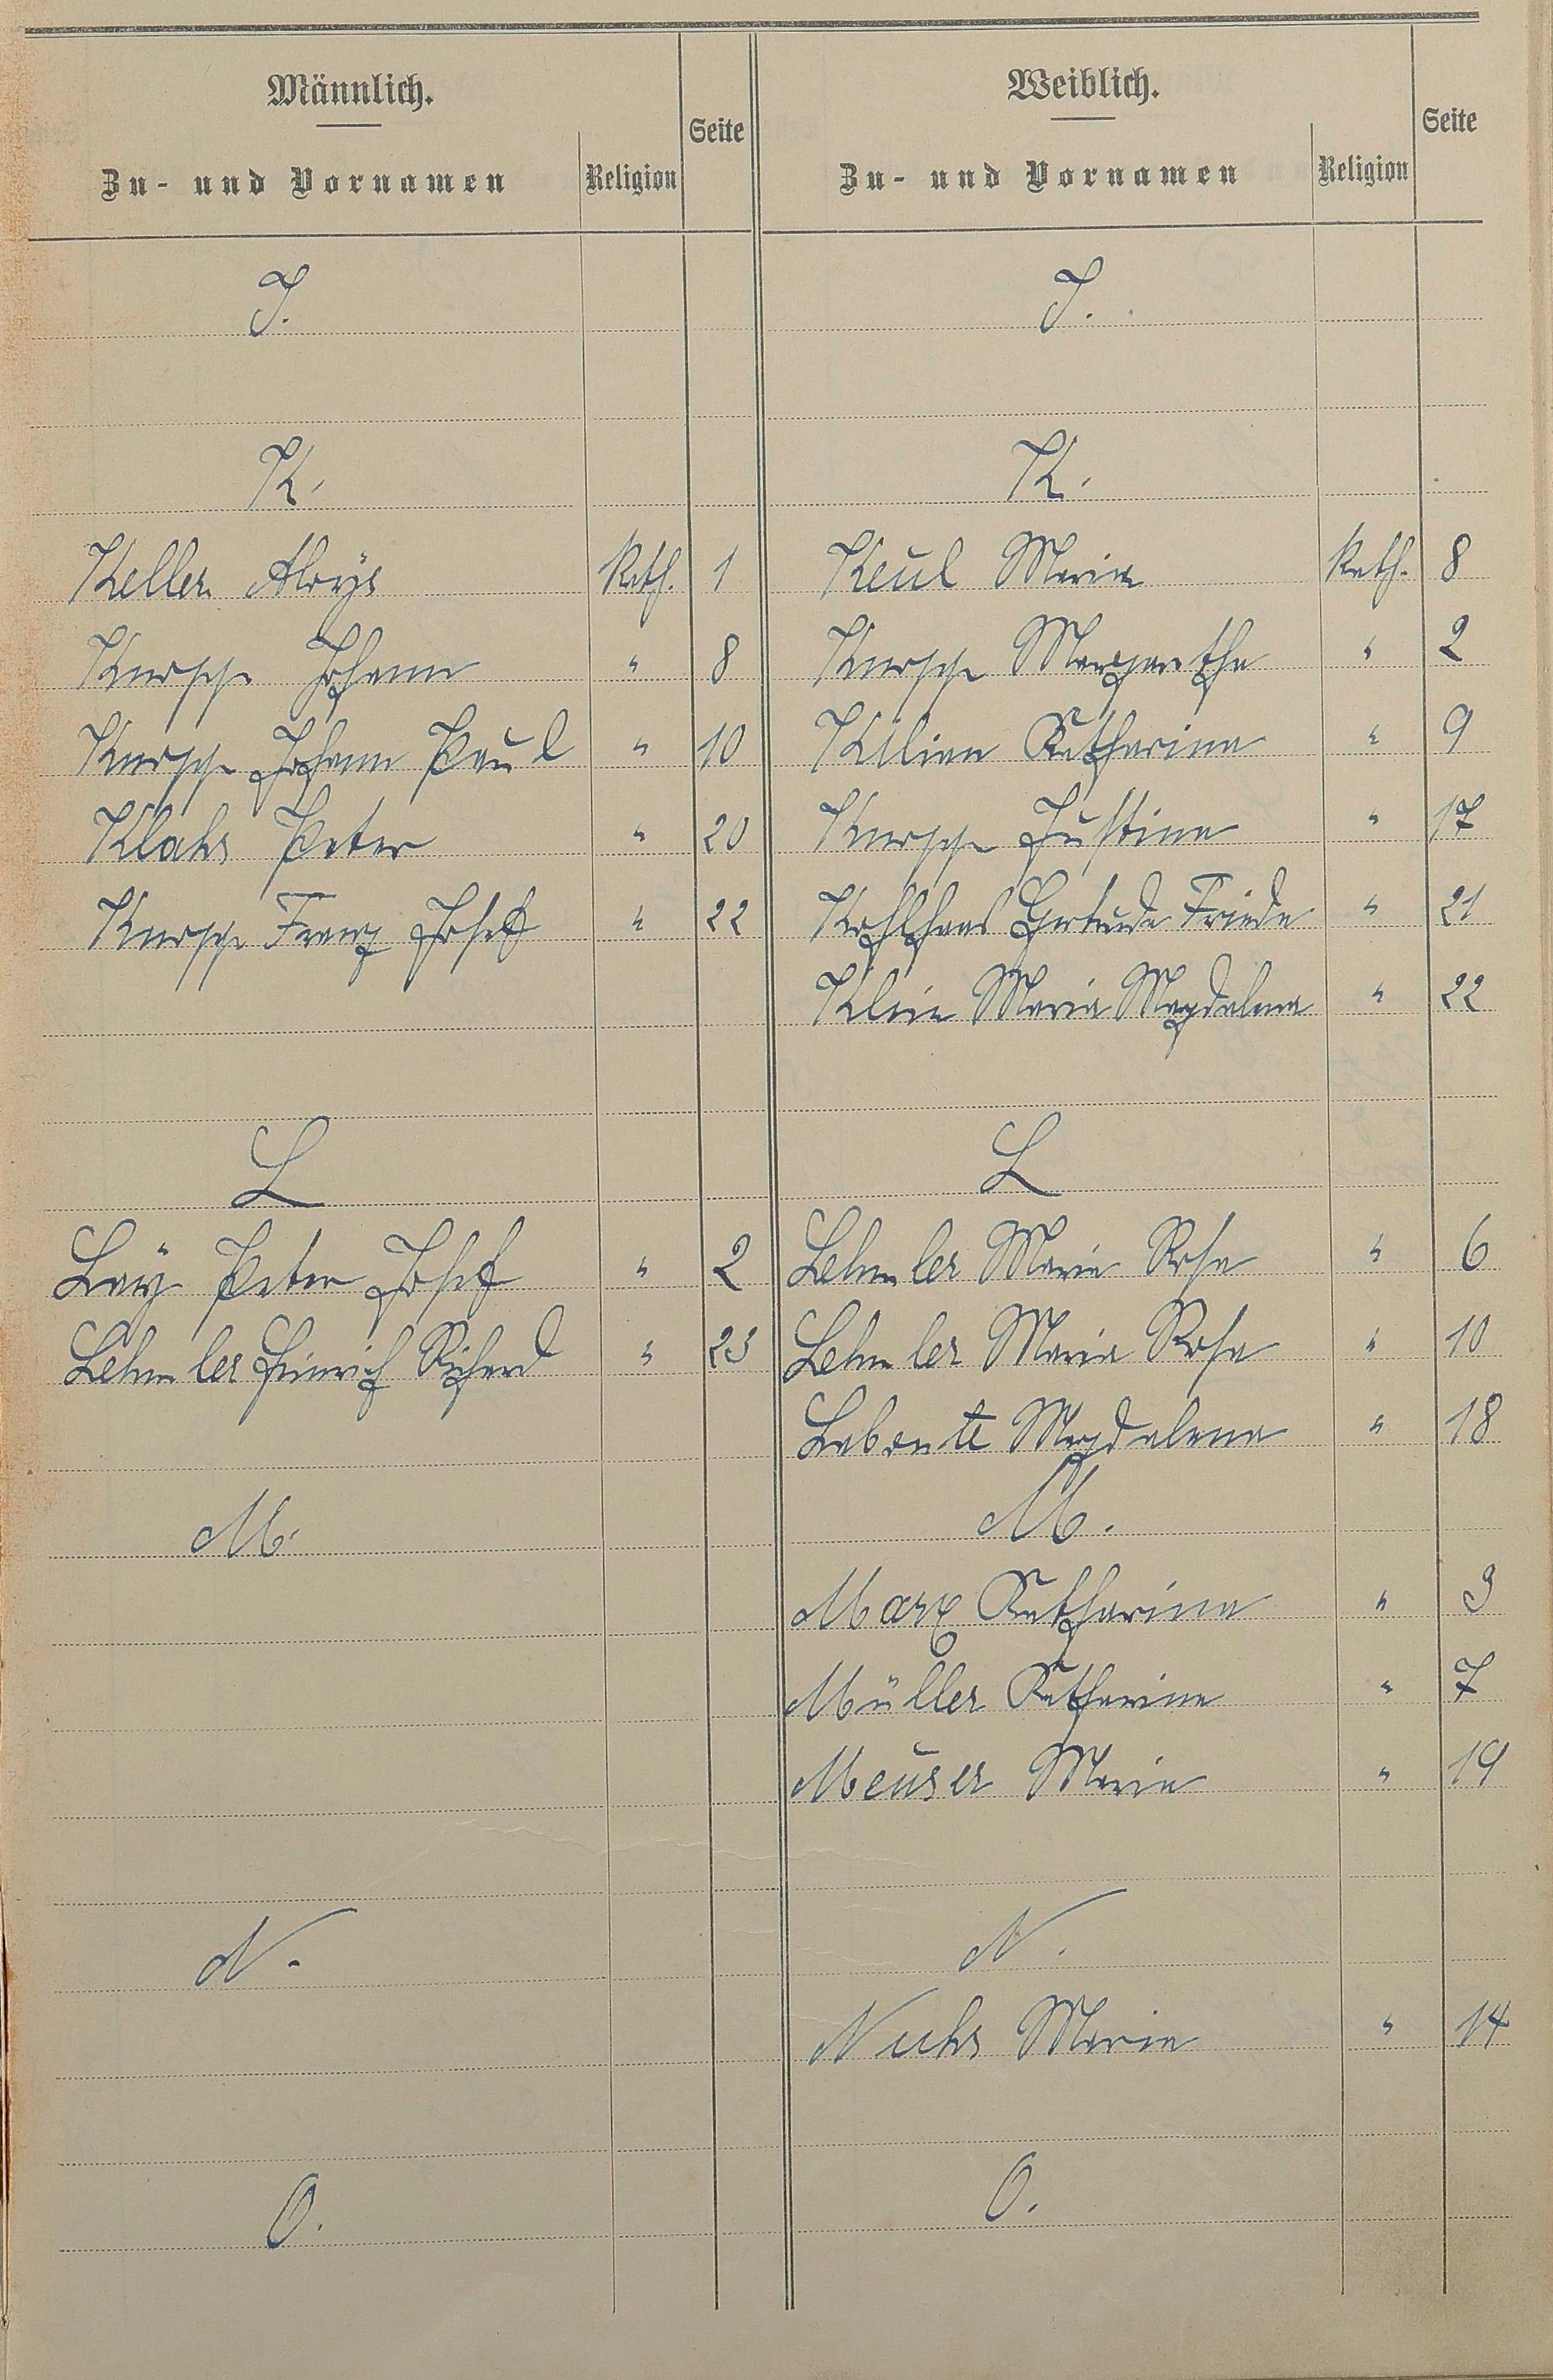 Männlich.
Zu- und Vornamen Religion Seite
J.
K.
Keller Aloys Kath. 1
Knopp Johann " 8
Knopp Johann Paul " 10
Klahs Peter " 20
Knopp Franz Josef " 22
L
Lay Peter Josef " 2
Lehmler Heinrich Richard " 23
M.
N.
O.
Weiblich.
Zu- und Vornamen Religion Seite
J.
K.
Keul Maria Kath. 8
Knopp Margaretha " 2
Kilian Katharina " 9
Knopp Justina " 17
Kohlhaas Gertrude Frieda " 21
Klein Maria Magdalena " 22
L
Lehmler Maria Rosa " 6
Lehmler Maria Rosa " 10
Labonte Magdalena " 18
M.
Marx Katharina " 3
Müller Katharina " 7
Meurer Maria " 19
N.
Nuhs Maria " 14
O.